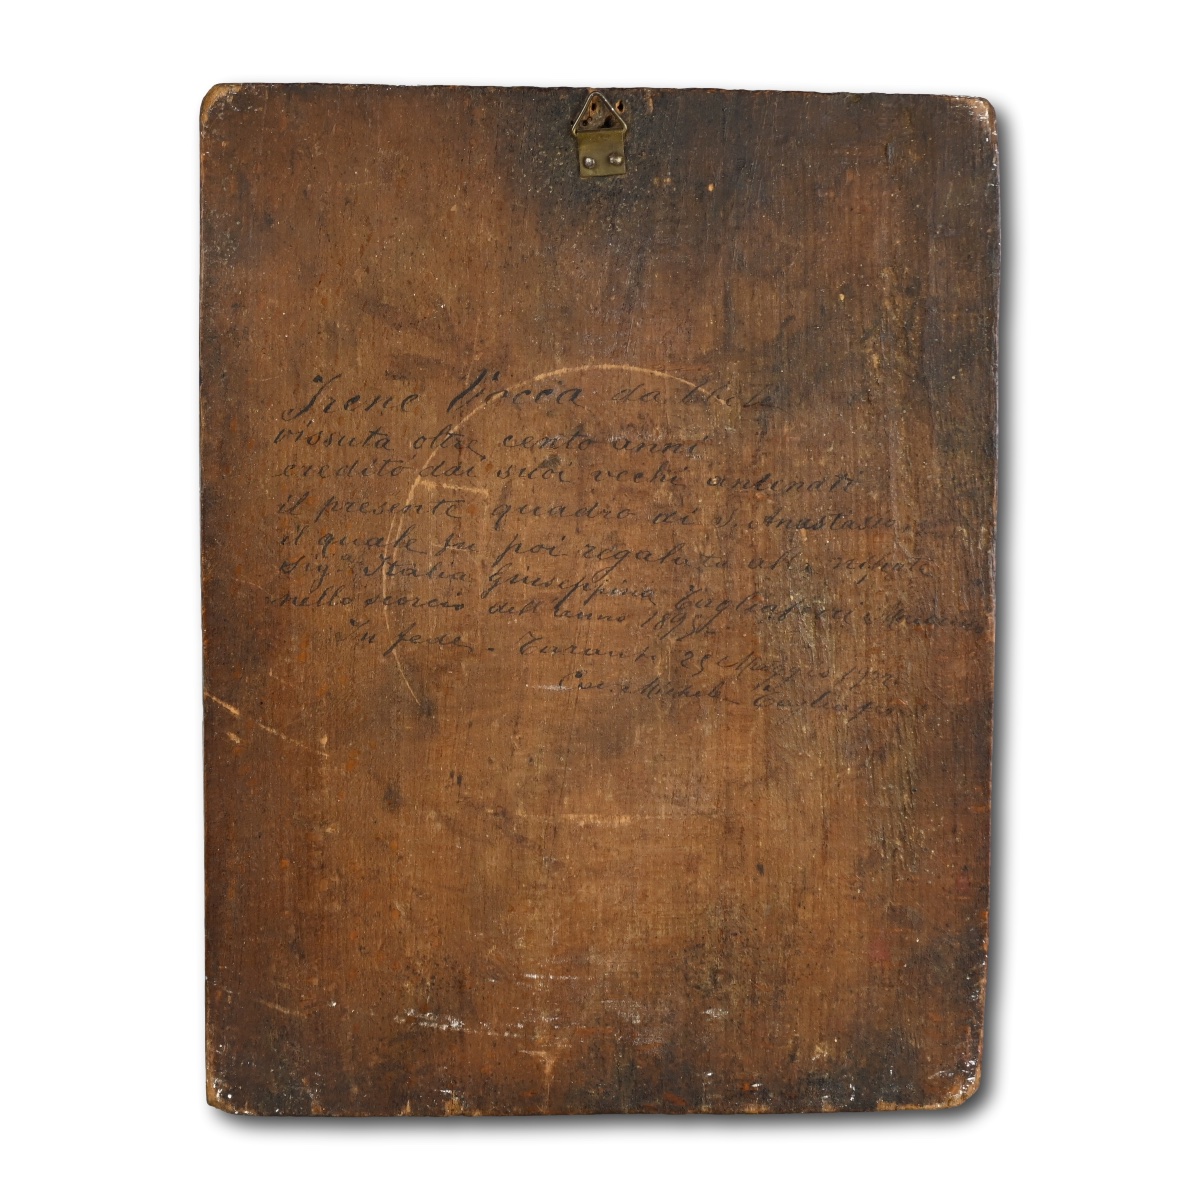 Irene Voccia da
vissuta oltre cento anni
eredito dai suoi vechi antinati
il presente quadro di S. Anastasio
il quale fu poi regalato alla nipote
Sig.ª Italia Giuseppina
nello scorcio dell'anno 189
In fede. Taranto 25 Maggio
Michele